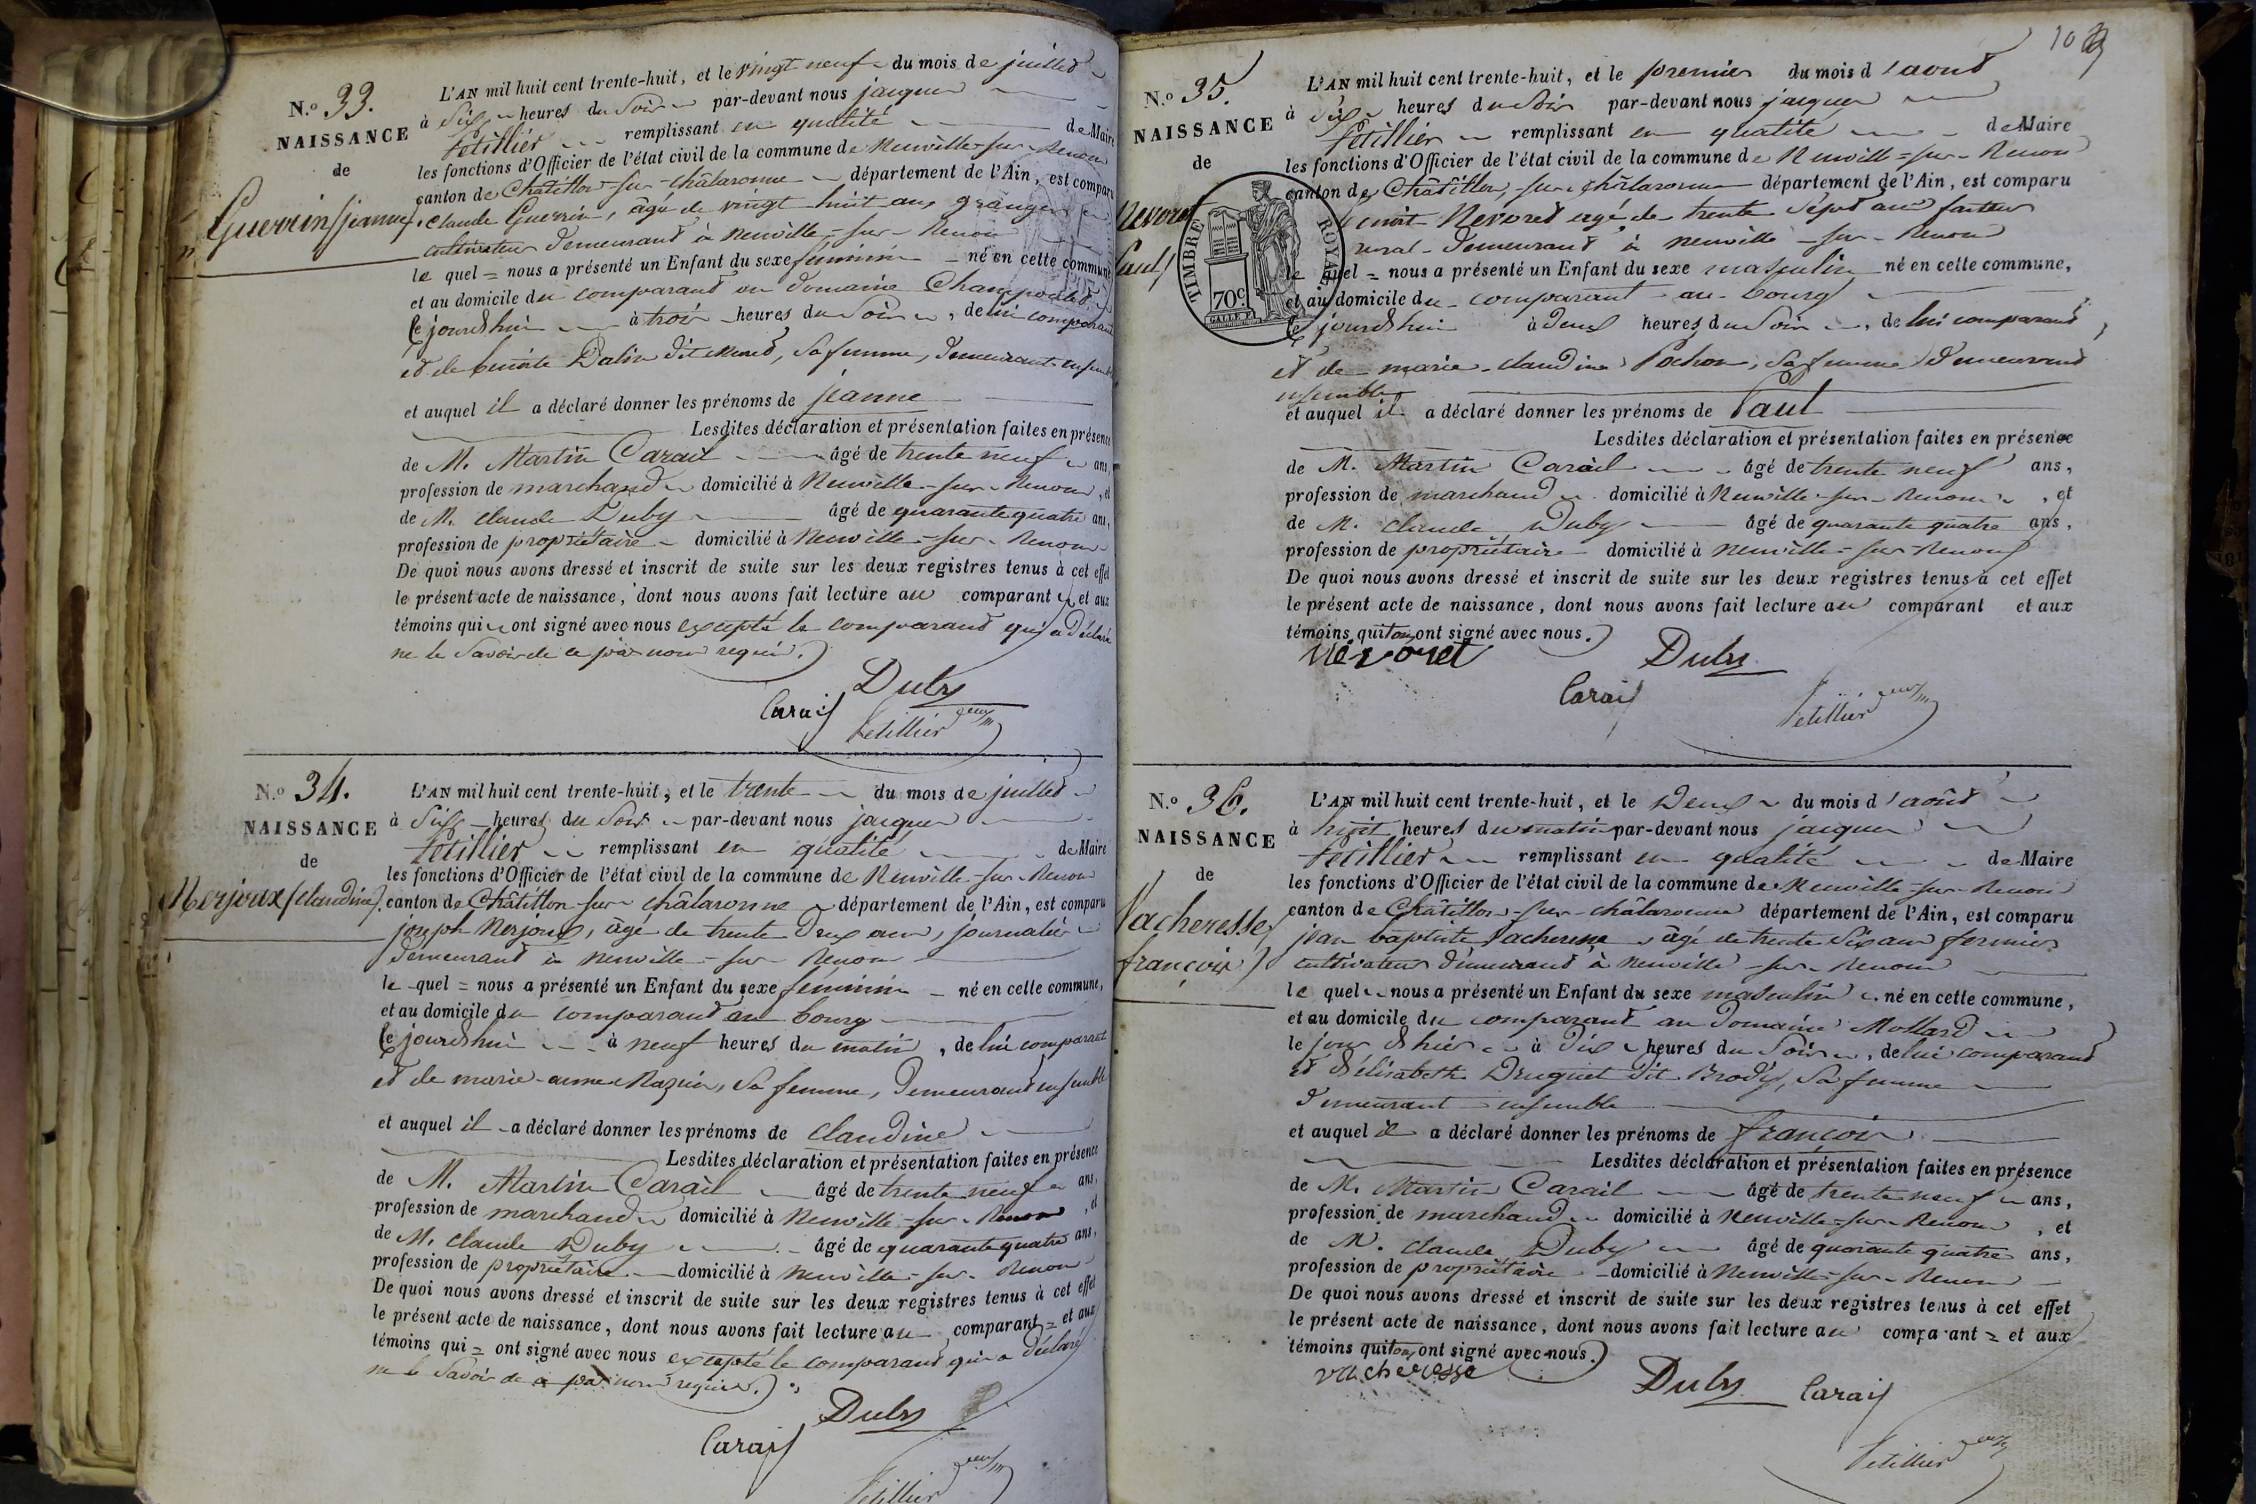 N.o 33.
NAISSANCE
de
Guerrin (jeanne).
L'AN mil huit cent trente-huit, et le vingt neuf du mois de juillet
à six heures du soir par-devant nous jacques
Petillier remplissant en qualité de Maire
les fonctions d'Officier de l'état civil de la commune de Neuville-sur-Renon
canton de Châtillon-sur-châlaronne département de l'Ain, est comparu
claude Guerrin, âgé de vingt huit ans granger
cultivateur demeurant à Neuville-sur-Renon
le quel = nous a présenté un Enfant du sexe féminin né en cette commune
et au domicile du comparant au domaine
Ce jourd'hui à trois heures du soir, de lui comparant
et de benoite dit, sa femme, demeurant ensemble
et auquel il a déclaré donner les prénoms de jeanne
Lesdites déclaration et présentation faites en présence
de M. Martin Carail âgé de trente neuf ans,
profession de marchand domicilié à Neuville-sur-Renon, et
de M. claude Duby âgé de quarante quatre ans,
profession de propriétaire domicilié à Neuville-sur-Renon
De quoi nous avons dressé et inscrit de suite sur les deux registres tenus à cet effet
le présent acte de naissance, dont nous avons fait lecture au comparant et aux
témoins qui ont signé avec nous excepté le comparant qui a déclaré
ne le savoir de ce par nous requis.
Duby
Carail
Petillier
N.o 34.
NAISSANCE
de
Merjoux (claudine).
L'AN mil huit cent trente-huit, et le trente du mois de juillet
à six heures du soir par-devant nous jacques
Petillier remplissant en qualité de Maire
les fonctions d'Officier de l'état civil de la commune de Neuville-sur-Renon
canton de Châtillon-sur-châlaronne département de l'Ain, est comparu
joseph Merjoux, âgé de trente deux ans, journalier
demeurant à Neuville-sur-Renon
le quel = nous a présenté un Enfant du sexe féminin né en cette commune,
et au domicile du comparant au bourg
Ce jourd'hui à neuf heures du matin, de lui comparant
et de marie-anne Razuri, sa femme, demeurant ensemble
et auquel il a déclaré donner les prénoms de claudine
Lesdites déclaration et présentation faites en présence
de M. Martin Carail âgé de trente neuf ans,
profession de marchand domicilié à Neuville-sur-Renon, et
de M. claude Duby âgé de quarante quatre ans,
profession de propriétaire domicilié à Neuville-sur-Renon
De quoi nous avons dressé et inscrit de suite sur les deux registres tenus à cet effet
le présent acte de naissance, dont nous avons fait lecture au comparant = et aux
témoins qui = ont signé avec nous excepté le comparant qui a déclaré
ne le savoir de ce par nous requis.
Duby
Carail
Petillier
N.o 35.
NAISSANCE
de
Nevoret
Paul)
TIMBRE ROYAL.
70c.
L'AN mil huit cent trente-huit, et le premier du mois d'août
à six heures du soir par-devant nous jacques
Petillier remplissant en qualité de Maire
les fonctions d'Officier de l'état civil de la commune de Neuville-sur-Renon
canton de Châtillon-sur-châlaronne département de l'Ain, est comparu
benoit Nevoret agé de trente sept ans facteur
rural demeurant à Neuville-sur-Renon
le quel = nous a présenté un Enfant du sexe masculin né en cette commune,
et au domicile du comparant au bourg
Ce jourd'hui à deux heures du soir, de lui comparant
et de marie-claudine Pochon, sa femme, demeurant
ensemble
et auquel il a déclaré donner les prénoms de Paul
Lesdites déclaration et présentation faites en présence
de M. Martin Carail âgé de trente neuf ans,
profession de marchand domicilié à Neuville-sur-Renon, et
de M. claude Duby âgé de quarante quatre ans,
profession de propriétaire domicilié à Neuville-sur-Renon
De quoi nous avons dressé et inscrit de suite sur les deux registres tenus à cet effet
le présent acte de naissance, dont nous avons fait lecture au comparant et aux
témoins qui tous ont signé avec nous.
Névoret Duby
Carail
Petillier
N.o 36.
NAISSANCE
de
Vacheresse
françois)
L'AN mil huit cent trente-huit, et le deux du mois d'août
à huit heures du matin par-devant nous jacques
Petillier remplissant en qualité de Maire
les fonctions d'Officier de l'état civil de la commune de Neuville-sur-Renon
canton de Châtillon-sur-châlaronne département de l'Ain, est comparu
jean baptiste Vacheresse, âgé de trente six ans fermier
cultivateur demeurant à Neuville-sur-Renon
le quel nous a présenté un Enfant du sexe masculin né en cette commune,
et au domicile du comparant au domaine Mollard
le jour d'hier à dix heures du soir, de lui comparant
et d'élisabeth Druguet dit Brody, sa femme
demeurant ensemble
et auquel il a déclaré donner les prénoms de françois
Lesdites déclaration et présentation faites en présence
de M. Martin Carail âgé de trente neuf ans,
profession de marchand domicilié à Neuville-sur-Renon, et
de M. claude Duby âgé de quarante quatre ans,
profession de propriétaire domicilié à Neuville-sur-Renon
De quoi nous avons dressé et inscrit de suite sur les deux registres tenus à cet effet
le présent acte de naissance, dont nous avons fait lecture au comparant = et aux
témoins qui tous ont signé avec nous.
vacheresse Duby Carail
Petillier